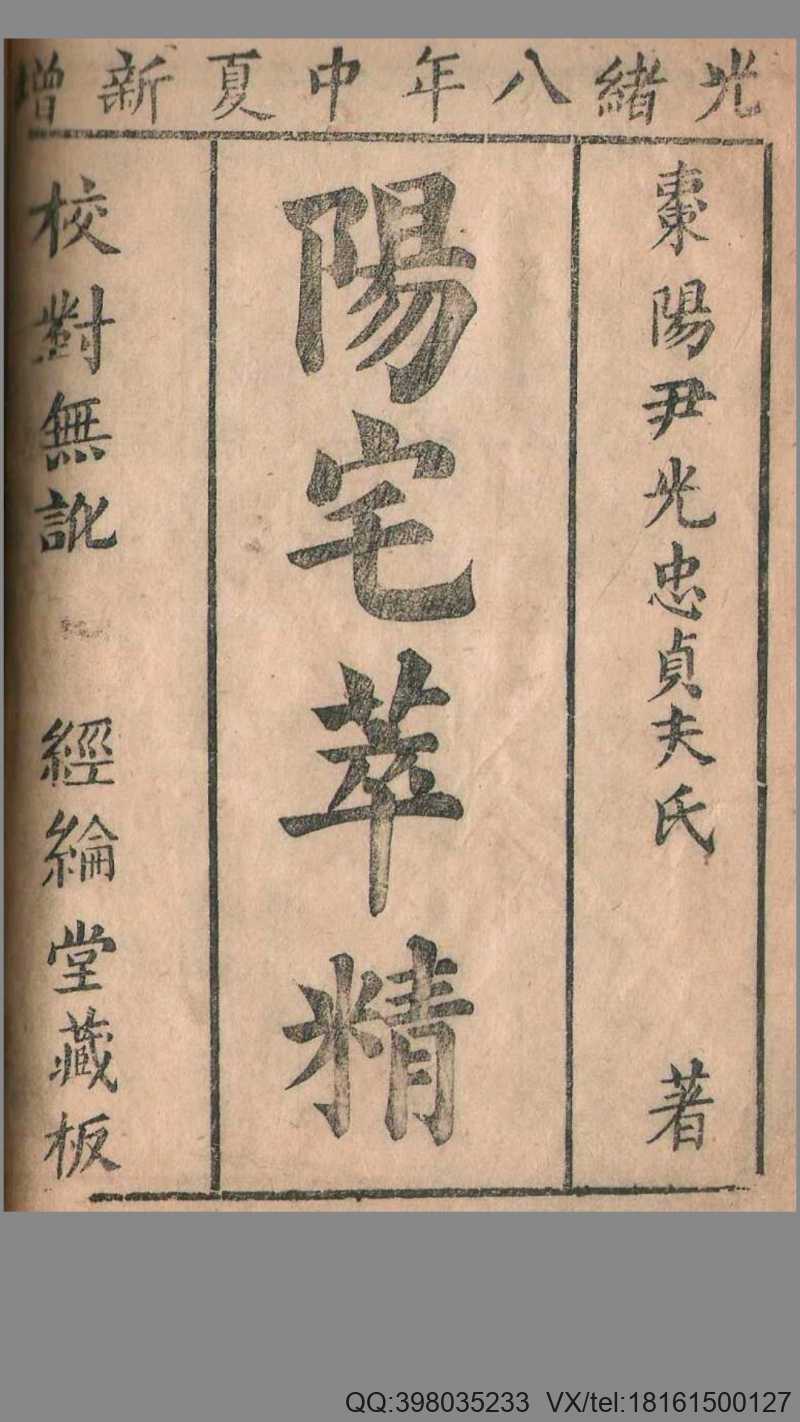 光緒八年中夏新增
棗陽尹光忠貞夫氏 著
陽宅萃精
校對無訛 經綸堂藏板
QQ:398035233 VX/tel:18161500127